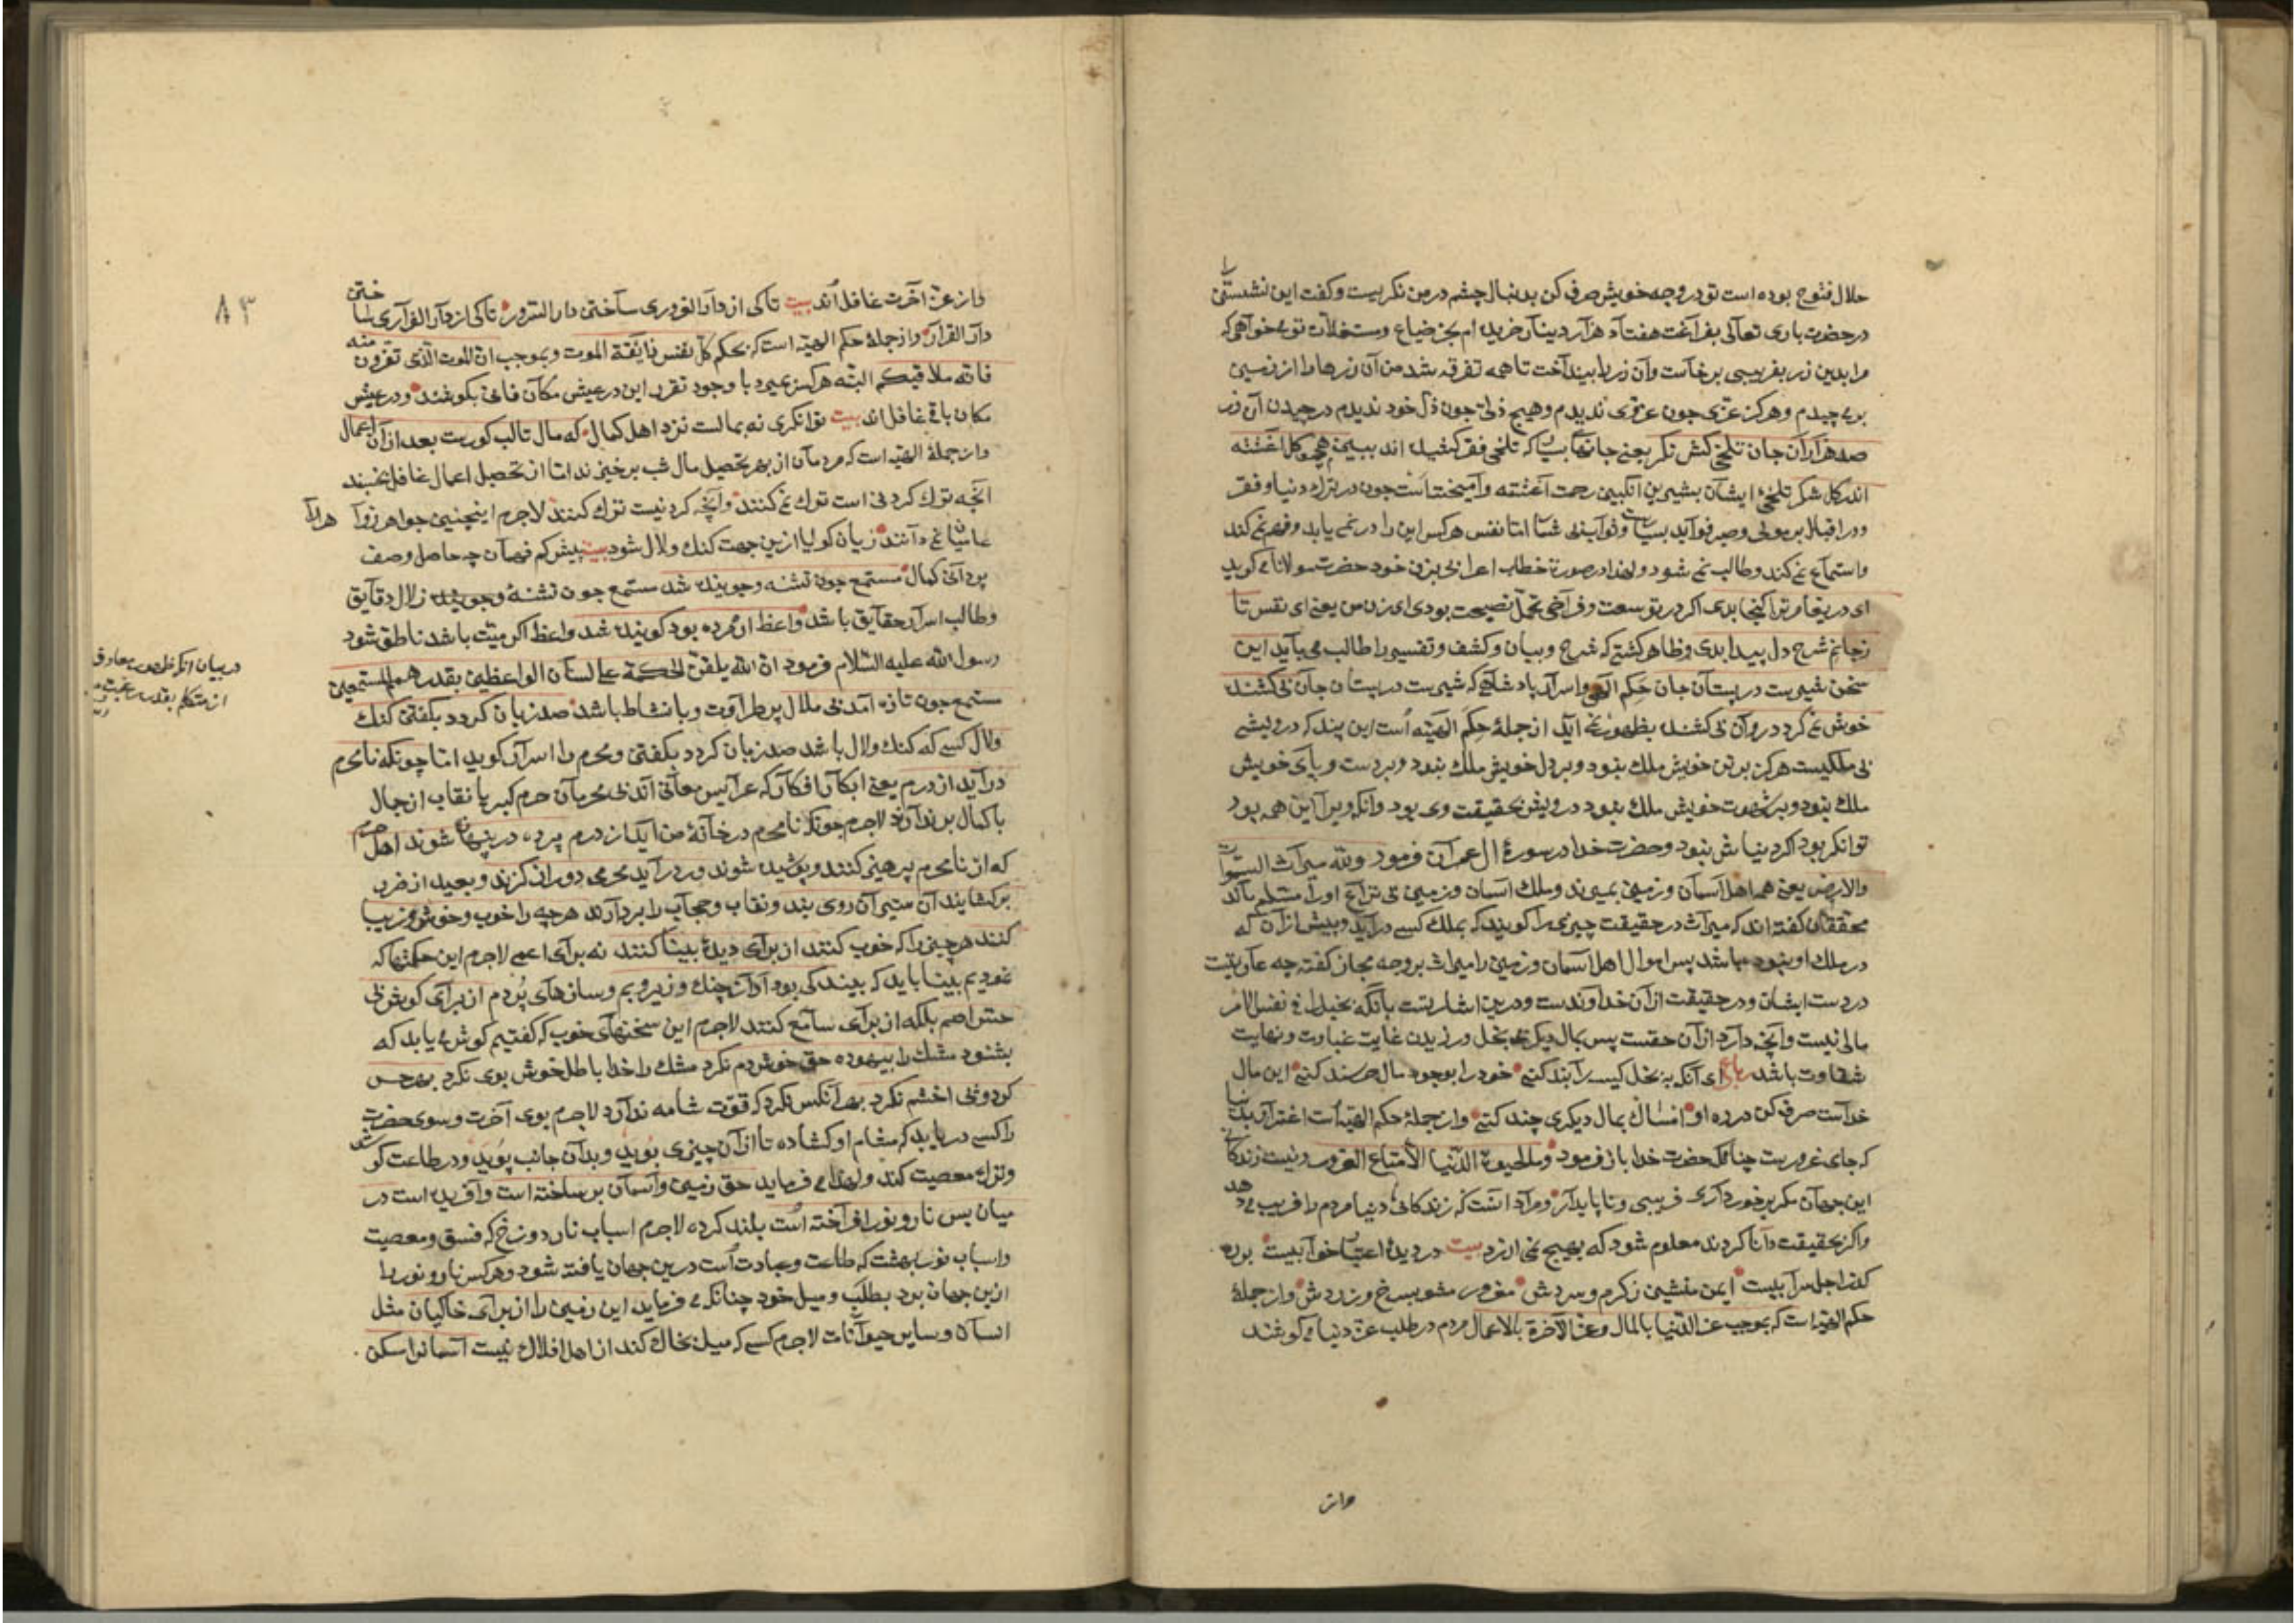 حلال فتوح بوده است تو در وجه خویش صرف کن بدنبال چشم در من نکریست و کفت این نشستن را
در حضرت باری تعالی بفراغت هفتاد هزار دینار خریده ام بجز ضیاع و مستغلات تو می خواهی که
مرا بدین زر بفریبی برخاست و آن زر را بینداخت تا همه تفرقه شد من آن زرها را از زمین
بر می چیدم و هرکز عزی چون عز وی ندیدم و هیچ ذلی چون ذل خود ندیدم در چیدن آن زر
صد هزاران جان تلخی کش نکر یعنی جانهای بسیار که تلخی فقر کشیده اند ببین همچو کل آغشته
اند کلشکر تلخی ایشان بشیرین انکبین رحمت آغشته و آمیخته است چون در ترک دنیا و فقر
و در اقبال بر مولی و صبر فواید بسیار و ثواب بی شمار اما نفس هر کس این را در نمی یابد و فهم نمی کند
و استماع نمی کند و طالب نمی شود و لهذا در صورت خطاب اعرابی بزن خود حضرت مولانا می کوید
ای دریغا مر ترا کنجا بدی اکر در تو سعت و فراخی تحمل نصیحت بودی ای زن من یعنی ای نفس تا
زجانم شرح دل پیدا بدی و ظاهر کشتی که شرح و بیان و کشف و تفسیر را طالب می باید این
سخن شیرست در پستان جان حکم الهی و اسرار پادشاهی که شیرست در پستان جان بی کشنده
خوش نمی کردد روان بی کشنده بظهور نمی آید از جملهٔ حکم الهیّه است این پند که درویشی
بی ملکیست هرکز بر تن خویش ملک نبود و بر دل خویش ملک نبود و بر دست و پای خویش
ملک نبود و بر شهوت خویش ملک نبود درویش بحقیقت وی بود و آنکه ویرا این همه بود
توانکر بود اکر دنیاش نبود و حضرت خدا در سورهٔ ال عمران فرمود ولله میراث السموات
والارض یعنی همه اهل آسمان و زمین بمیرند و ملک آسمان و زمین بی نزاع او را مسلم ماند
محققان کفته اند که میراث در حقیقت چیزی را کویند که بملک کسی درآید و پیش از آن که
در ملک او نبوده باشد پس اموال اهل آسمان و زمین را میراث بر وجه مجاز کفته چه عاریتیست
در دست ایشان و در حقیقت از آن خداوندست و درین اشارتست بآنکه بخیل را فی نفس الامر
مالی نیست و آنچه دارد از آن حقست پس بمال دیکری بخل ورزیدن غایت غباوت و نهایت
شقاوت باشد رباعی ای آنکه به بخل کیسه را بند کنی خود را بوجود مال خرسند کنی این مال
خداست صرف کن در ره او امساک بمال دیکری چند کنی و از جملهٔ حکم الهیّه است اغترار بدنیا
که جای غرورست چنانکه حضرت خدا باز فرمود وما الحیوة الدّنیا الا متاع الغرور و نیست زندکانی
این جهان مکر برخورداری فریبی و ناپایدار و مراد آنست که زندکانی دنیا مردم را فریب می دهد
و اکر بحقیقت دانا کردند معلوم شود که بهیچ نمی ارزد بیت در دیدهٔ اعتبار خوابیست بره
کذر اجل سرابیست ایمن منشین زکرم و سردش مغرور مشو بسرخ و زردش و از جملهٔ
حکم الهیّه است که بموجب عزّ الدّنیا بالمال و عزّ الآخرة بالاعمال مردم در طلب عزّ دنیا می کوشند
واز
واز عزّ آخرت غافل اند بیت تا کی از دار الغروری ساختن دار السّرور تا کی از دار الفراری ساختن
دار القرار و از جملهٔ حکم الهیّه است که بحکم کلّ نفس ذایقة الموت و بموجب انّ الموت الّذی تفرّون منه
فانّه ملاقیکم البتّه هرکس بمیرد با وجود تقرر این در عیش مکان فانی بکوشند و در عیش
مکان باقی غافل اند بیت توانکری نه بمالست نزد اهل کمال که مال تا لب کورست بعد از آن اعمال
و از جملهٔ الهیّه است که مردمان از بهر تحصیل مال شب برخیزند اما از تحصیل اعمال غافل بخسبند
آنچه ترک کردنی است ترک نمی کنند و آنچه کردنیست ترک کنند لاجرم اینچنین جواهر زواهر را
عاشقان می دانند زبان کویا ازین جهت کنک و لال شود بیت پیش کم فهمان چه حاصل وصف
پردازی کمال مستمع چون تشنه و جوینده شد مستمع چون تشنه و جوینده زلال دقایق
و طالب اسرار حقایق باشد واعظ ار مرده بود کوینده شد واعظ اکر میّت باشد ناطق شود
رسول الله علیه السّلام فرمود انّ الله یلقّن الحکمة علی لسان الواعظین بقدر همم المستمعین
مستمع چون تازه آمد بی ملال پر طراوت و با نشاط باشد صد زبان کردد بکفتن کنک
و لال کسی که کنک و لال باشد صد زبان کردد بکفتن و محرم را اسرار کوید اما چونکه نامحرم
درآید از درم یعنی ابکار افکار که عرایس معانی اند بی محرمان حرم کبریا نقاب از جمال
با کمال بر ندارند لاجرم چونکه نامحرم در خانهٔ من آید از درم پرده در پنهان شوند اهل حرم
که از نامحرم پرهیز کنند و پوشیده شوند ور درآید محرمی دور از کزند و بعید از ضرر
برکشایند آن ستیران روی بند و نقاب و حجاب را بردارند هرچه را خوب و خوش و زیبا
کنند هر چیزی را که خوب کنند از برای دیدهٔ بینا کنند نه برای اعمی لاجرم این حکمتها که
نمودیم بینا باید که بیند کی بود آواز چنک و زیر و بم و سازهای پر دم از برای کوش بی
حسّ اصم بلکه از برای سامع کنند لاجرم این سخنهای خوب که کفتیم کوش می یابد که
بشنود مشک را بیهوده حق خوش دم نکرد مشک را خدا باطل خوش بوی نکرد بهر حس
کرد و بی اخشم نکرد بهر آنکس نکرد که قوّت شامه ندارد لاجرم بوی آخرت و سوی حضرت
را کسی دریابد که مشام او کشاده تا از آن چیزی بوید و بدان جانب پوید و در طاعت کوشد
و ترک معصیت کند و لهذا می فرماید حق زمین و آسمان بر ساخته است و آفریده است در
میان بس نار و نور افراخته است بلند کرده لاجرم اسباب نار دوزخ که فسق و معصیت
و اسباب نور بهشت که طاعت و عبادت است درین جهان یافته شود و هرکس نار و نور را
ازین جهان برد بطلب و میل خود چنانکه می فرماید این زمین را از برای خاکیان مثل
انسان و سایر حیوانات لاجرم کسی که میل بخاک کند از اهل افلاک نیست آسمانرا مسکن
۸۳
در بیان آنکه ظهور معارف
از متکلم بقدر رغبت